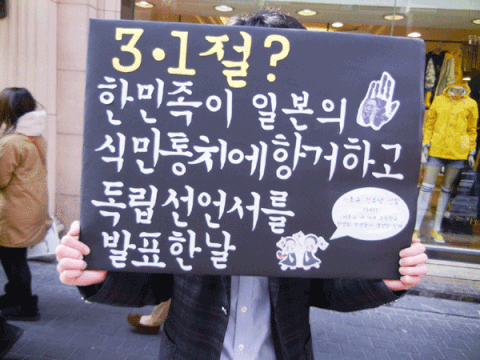 3·1절?
한민족이 일본의
식민통치에항거하고
독립선언서를
발표한날